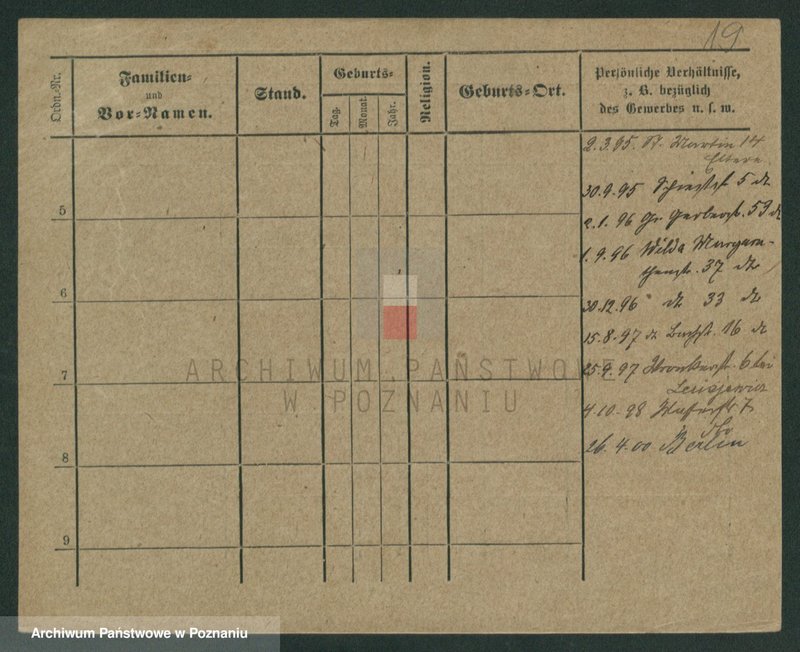 19
Ordn.-Nr.
Familien-
und
Vor-Namen.
Stand.
Geburts-
Tag.
Monat.
Jahr.
Religion.
Geburts-Ort.
Persönliche Verhältnisse,
z. B. bezüglich
des Gewerbes u. s. w.
2.3.95. St. Martin 14
Eltern
30.9.95 5 dt
5
2.1.96 Gr. Gerberst. 53 dt
1.9.96 Wilda Margare-
thenst. 37 dt
6
30.12.96 dt 33 dt
15.8.97 dt Bachst. 16 dt
25.9.97 Wronkerst. 6 bei
7
4.10.98 7
26.4.00 Berlin
8
9
ARCHIWUM PAŃSTWOWE
W POZNANIU
Archiwum Państwowe w Poznaniu